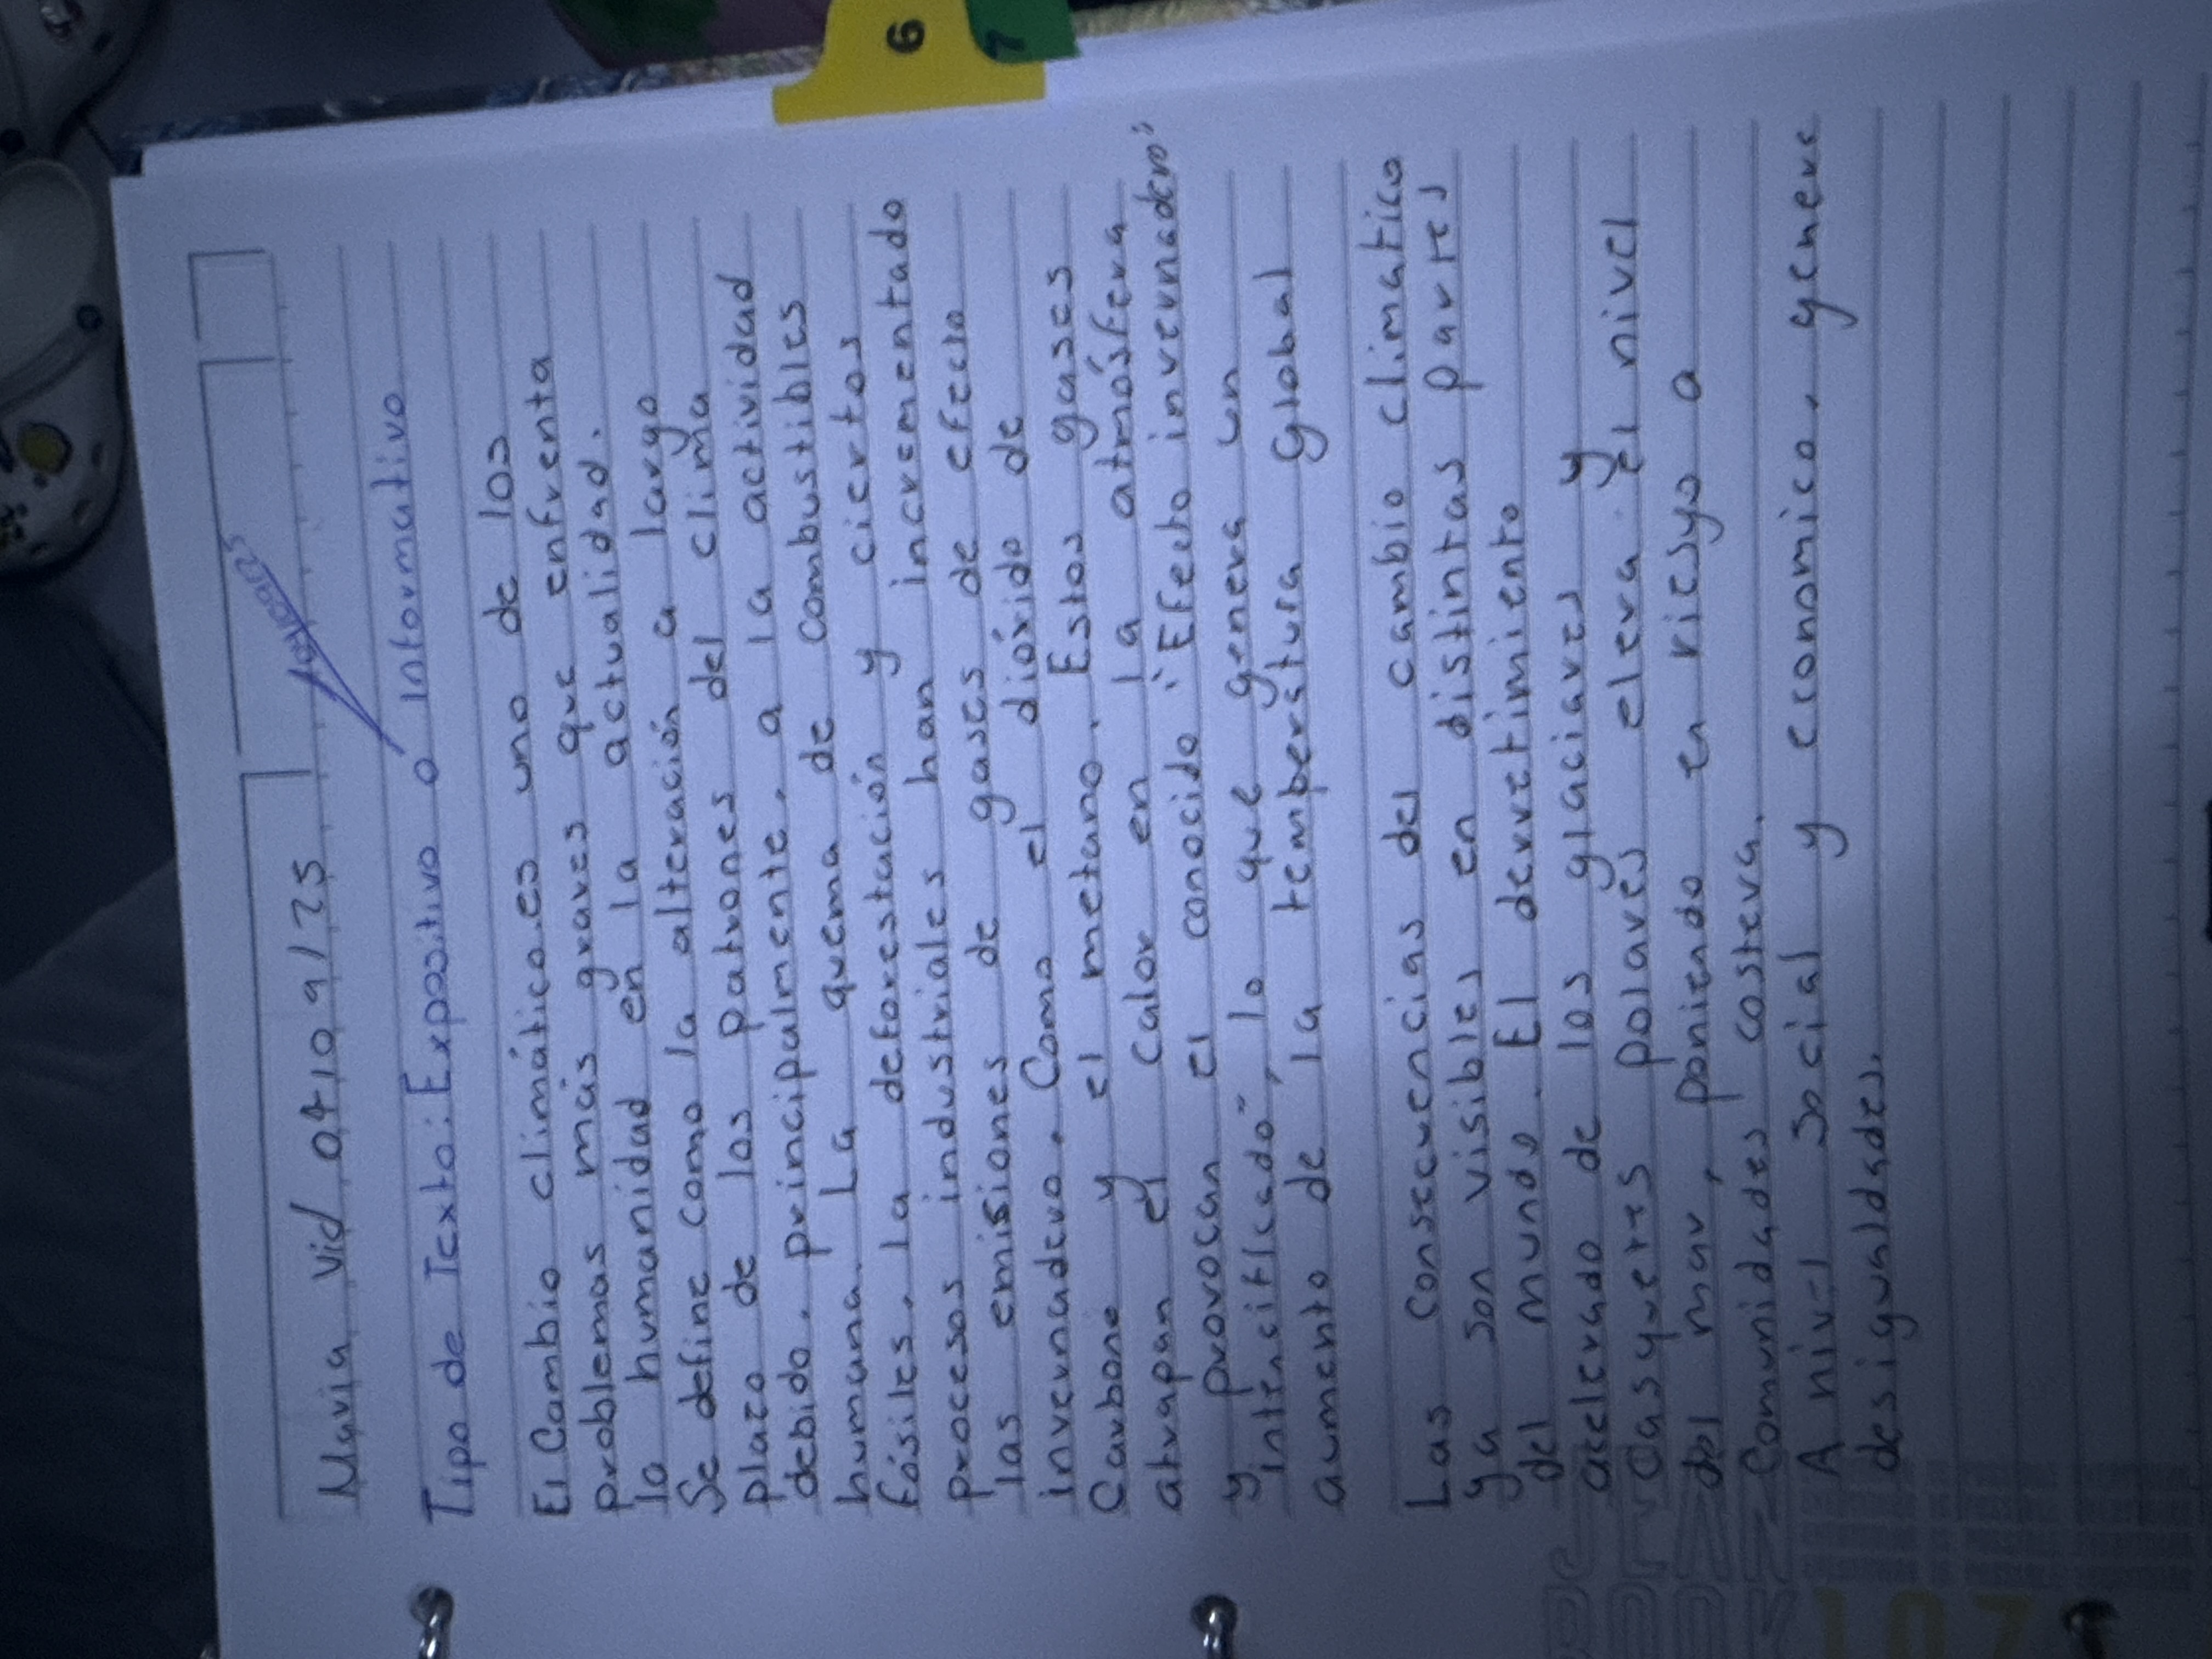 Maria Vid 04/09/25
Tipo de Texto: Expositivo ó informativo
El Cambio climático es uno de los
problemas más graves que enfrenta
la humanidad en la actualidad.
Se define como la alteración a largo
plazo de los patrones del clima
debido, principalmente, a la actividad
humana. La quema de combustibles
fósiles, la deforestación y ciertos
procesos industriales han incrementado
las emisiones de gases de efecto
invernadero, Como el dióxido de
Carbono y el metano. Estos gases
atrapan el calor en la atmósfera
y provocan el conocido "Efecto invernadero"
intencificado", lo que genera un
aumento de la temperatura global
Las consecuencias del cambio climatico
ya son visibles en distintas partes
del mundo. El derretimiento
acelerado de los glaciares y
Casquetes polares eleva el nivel
del mar, poniendo en riesgo a
Comunidades costera.
A nivel social y economico, genera
desigualdades.
6
7
107